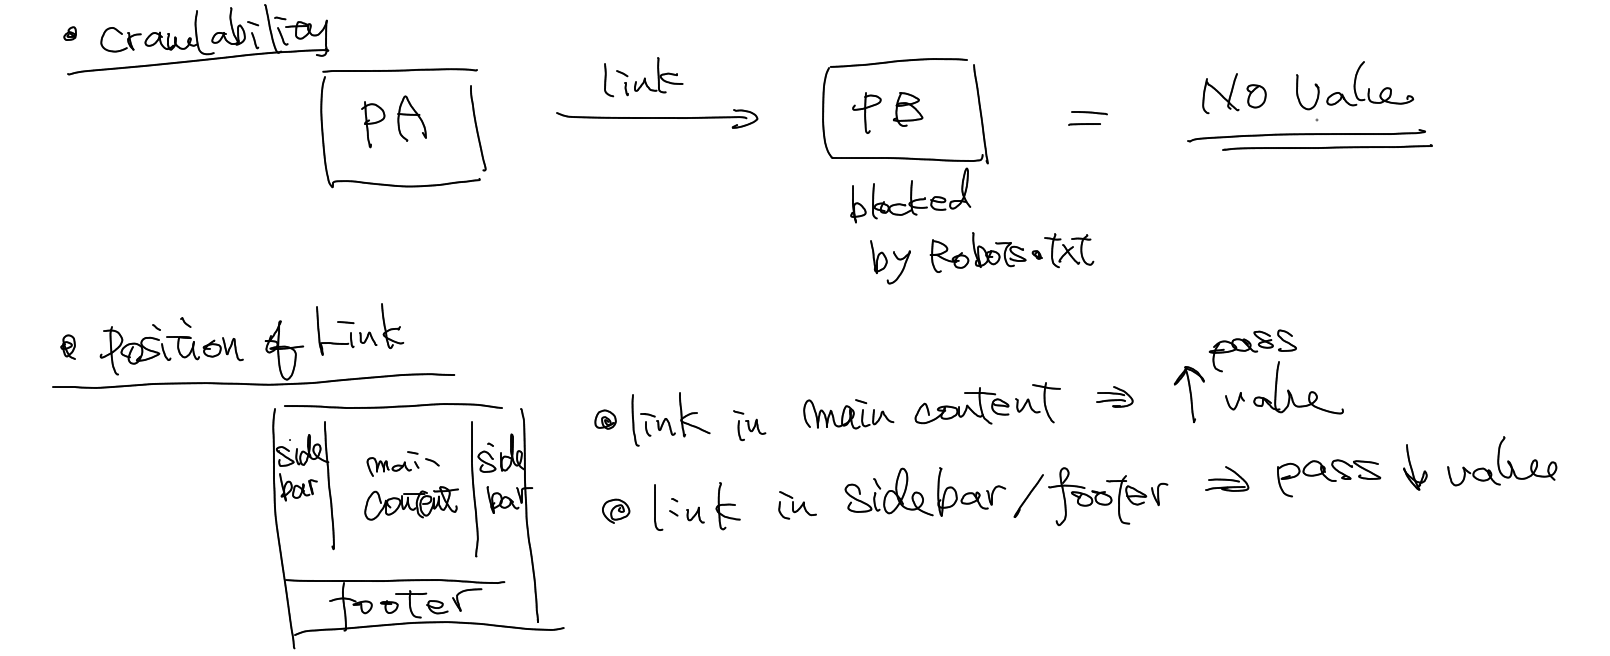 • Crawlability
PA
link
PB
= No Value
blocked
by Robots.txt
• Position of Link
side
bar
main
content
side
bar
footer
• link in main content ⇒ ↑ pass
value
• link in sidebar/footer ⇒ pass ↓ value